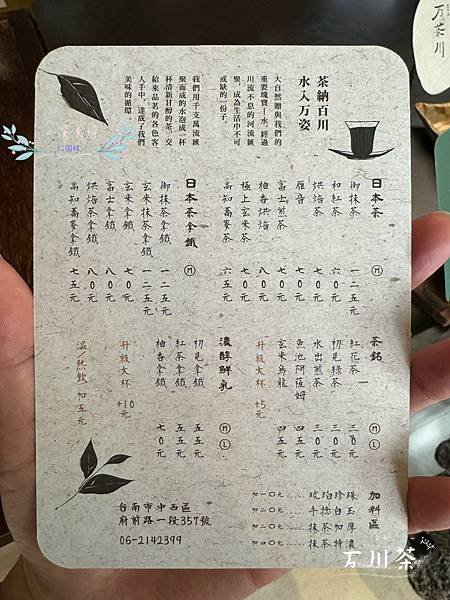 万茶川
茶納百川
水入万姿
大自然贈與我們的
重要瑰寶－水，經過
川流不息的河流匯
聚，成為生活中不可
或缺的一份子。
我們用千支萬流匯
聚而成的水泡成一杯
杯清新甘醇的茶，交
給來品茗的各色客
人手中，達成了我們
美味的循環。
日本茶 Ⓜ
御抹茶 一二五元
和紅茶 六〇元
烘焙茶 七〇元
雁音 七〇元
富士煎茶 七〇元
柚香烘焙 八〇元
極上玄米茶 七〇元
高知蕎麥茶 六五元
日本茶拿鐵 Ⓜ
御抹茶拿鐵 一二五元
玄米抹茶拿鐵 一二五元
玄米拿鐵 七〇元
富士拿鐵 八〇元
烘焙茶拿鐵 八〇元
高知蕎麥拿鐵 七五元
茶銘 Ⓜ Ⓛ
紅花茶 三〇元
初見綠茶 三〇元
水出煎茶 三〇元
魚池阿薩姆 四五元
玄米烏龍 四五元
升級大杯 +5元
濃醇鮮乳 Ⓜ Ⓛ
初見拿鐵 五五元
紅茶拿鐵 五五元
柚香拿鐵 七〇元
升級大杯 +10元
溫/熱飲 加五元
加料區
琥珀珍珠……加一〇元
手捻白玉……加二〇元
抹茶加厚……加二〇元
抹茶特濃……加四〇元
台南市中西區
府前路一段357號
06-2142399
万川茶